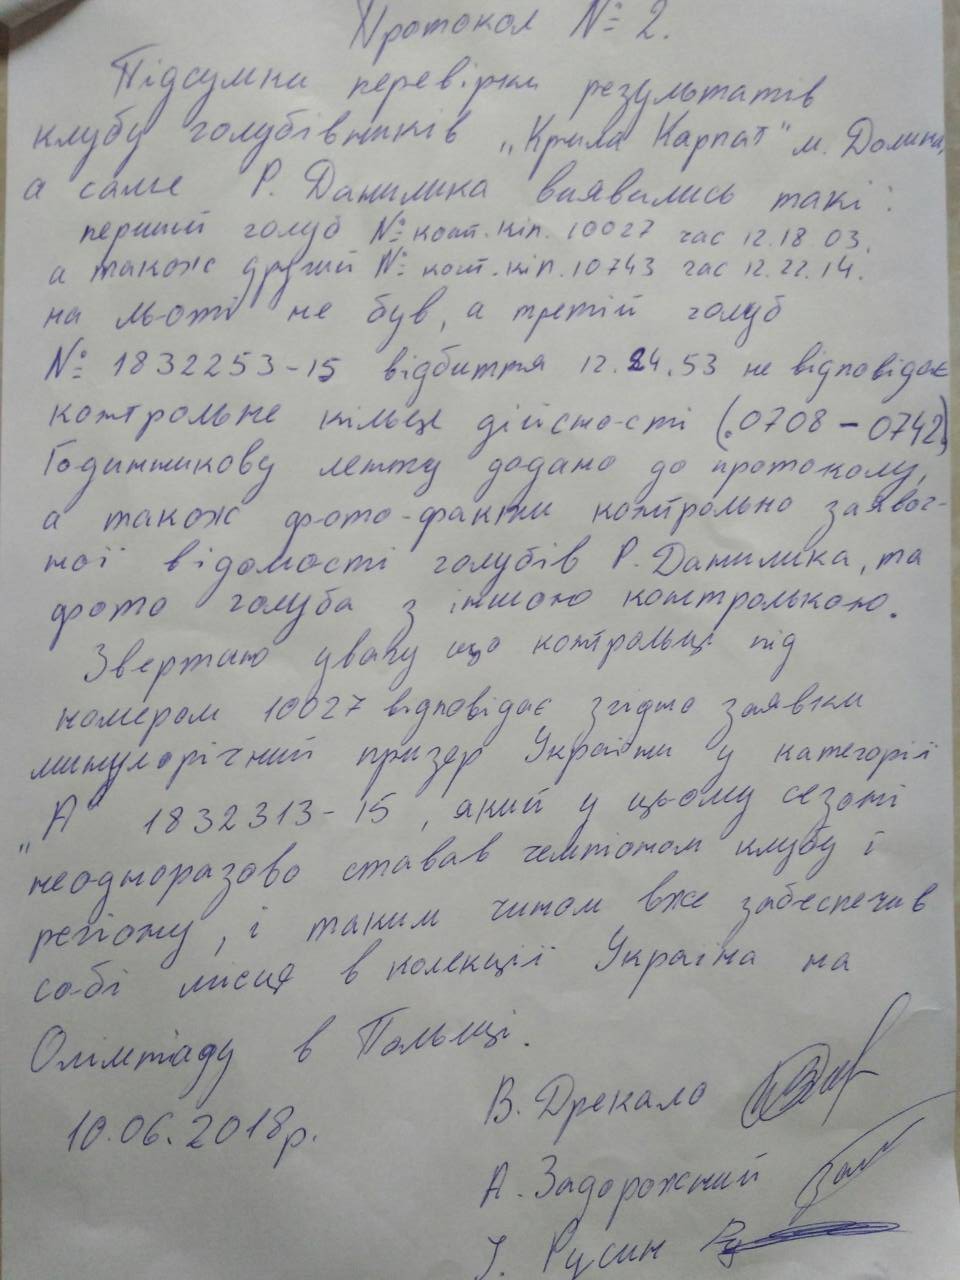 Протокол № 2.
Підсумки перевірки результатів
клубу голубівників „Крила Карпат" м. Долини,
а саме Р. Данилика виявились такі:
перший голуб № конт. кіл. 10027 час 12.18 03.
а також другий № конт. кіл. 10743 час 12.22.14.
на льоті не був, а третій голуб
№ 1832253-15 відбиття 12.24.53 не відповідає
контрольне кільце дійсності (.0708 – 0742)
Годинникову ленту додано до протоколу,
а також фото-факти контрольно заявоч-
ної відомості голубів Р. Данилика, та
фото голуба з іншою контролькою.
Звертаю увагу що контрольці під
номером 10027 відповідає згідно заявки
минулорічний призер України у категорії
„А" 1832313-15, який у цьому сезоні
неодноразово ставав чемпіоном клубу і
регіону, і таким чином вже забеспечив
собі місце в колекції Україна на
Олімпіаду в Польщі.
10.06.2018р.
В. Дрекало
А. Задорожний
І. Русин